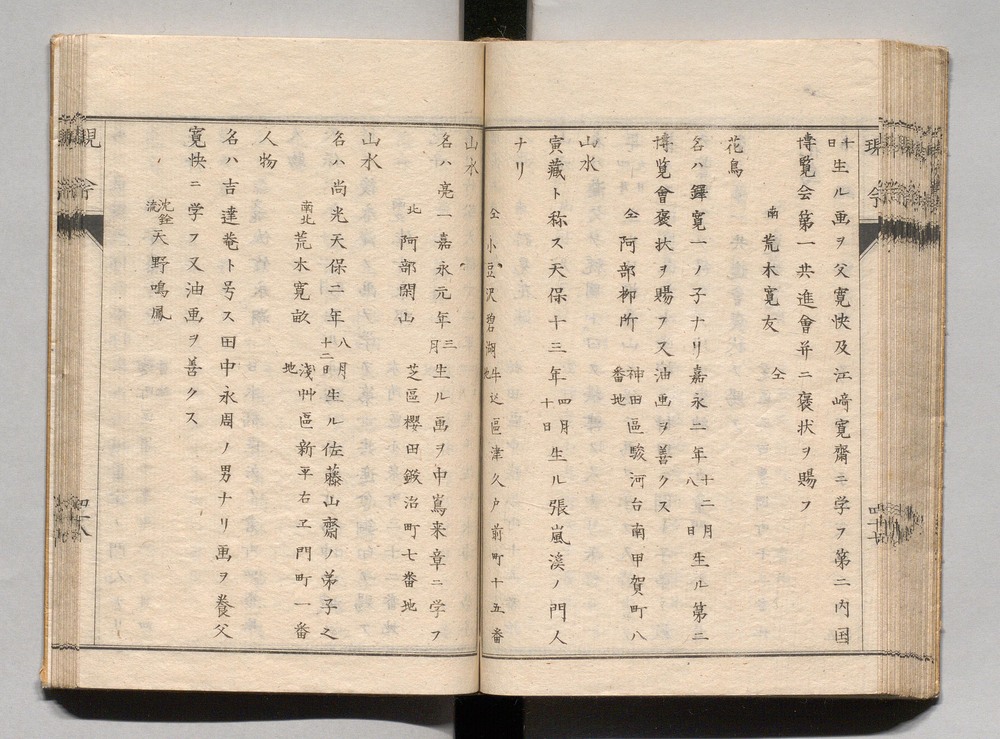 十日生ル画ヲ父寛快及江﨑寛齋ニ学フ第二内国
博覧会第一共進會并ニ褒状ヲ賜フ
南 荒木寛友 仝
花鳥
名ハ鐸寛一ノ子ナリ嘉永二年十二月八日生ル第二
博覧會褒状ヲ賜フ又油画ヲ善クス
仝 阿部柳所 神田區駿河台南甲賀町八番地
山水
寅藏ト称ス天保十三年四月十日生ル張嵐溪ノ門人
ナリ
仝 小豆沢碧湖 牛込區津久戸前町十五番地
山水
名ハ亮一嘉永元年三月生ル画ヲ中嶌来章ニ学フ
北 阿部閑山 芝區櫻田鍛冶町七番地
山水
名ハ尚光天保二年八月十二日生ル佐藤山齋ノ弟子之
南北 荒木寛畝 淺艸區新平右エ門町一番地
人物
名ハ吉達菴ト号ス田中永周ノ男ナリ画ヲ養父
寛快ニ学フ又油画ヲ善クス
沈銓流 天野鳴鳳
現今